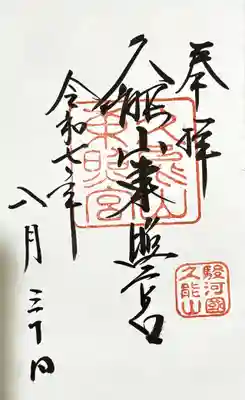 奉拝
久能山東照宮
令和七年
八月三十日
久能山東照宮
駿河國久能山